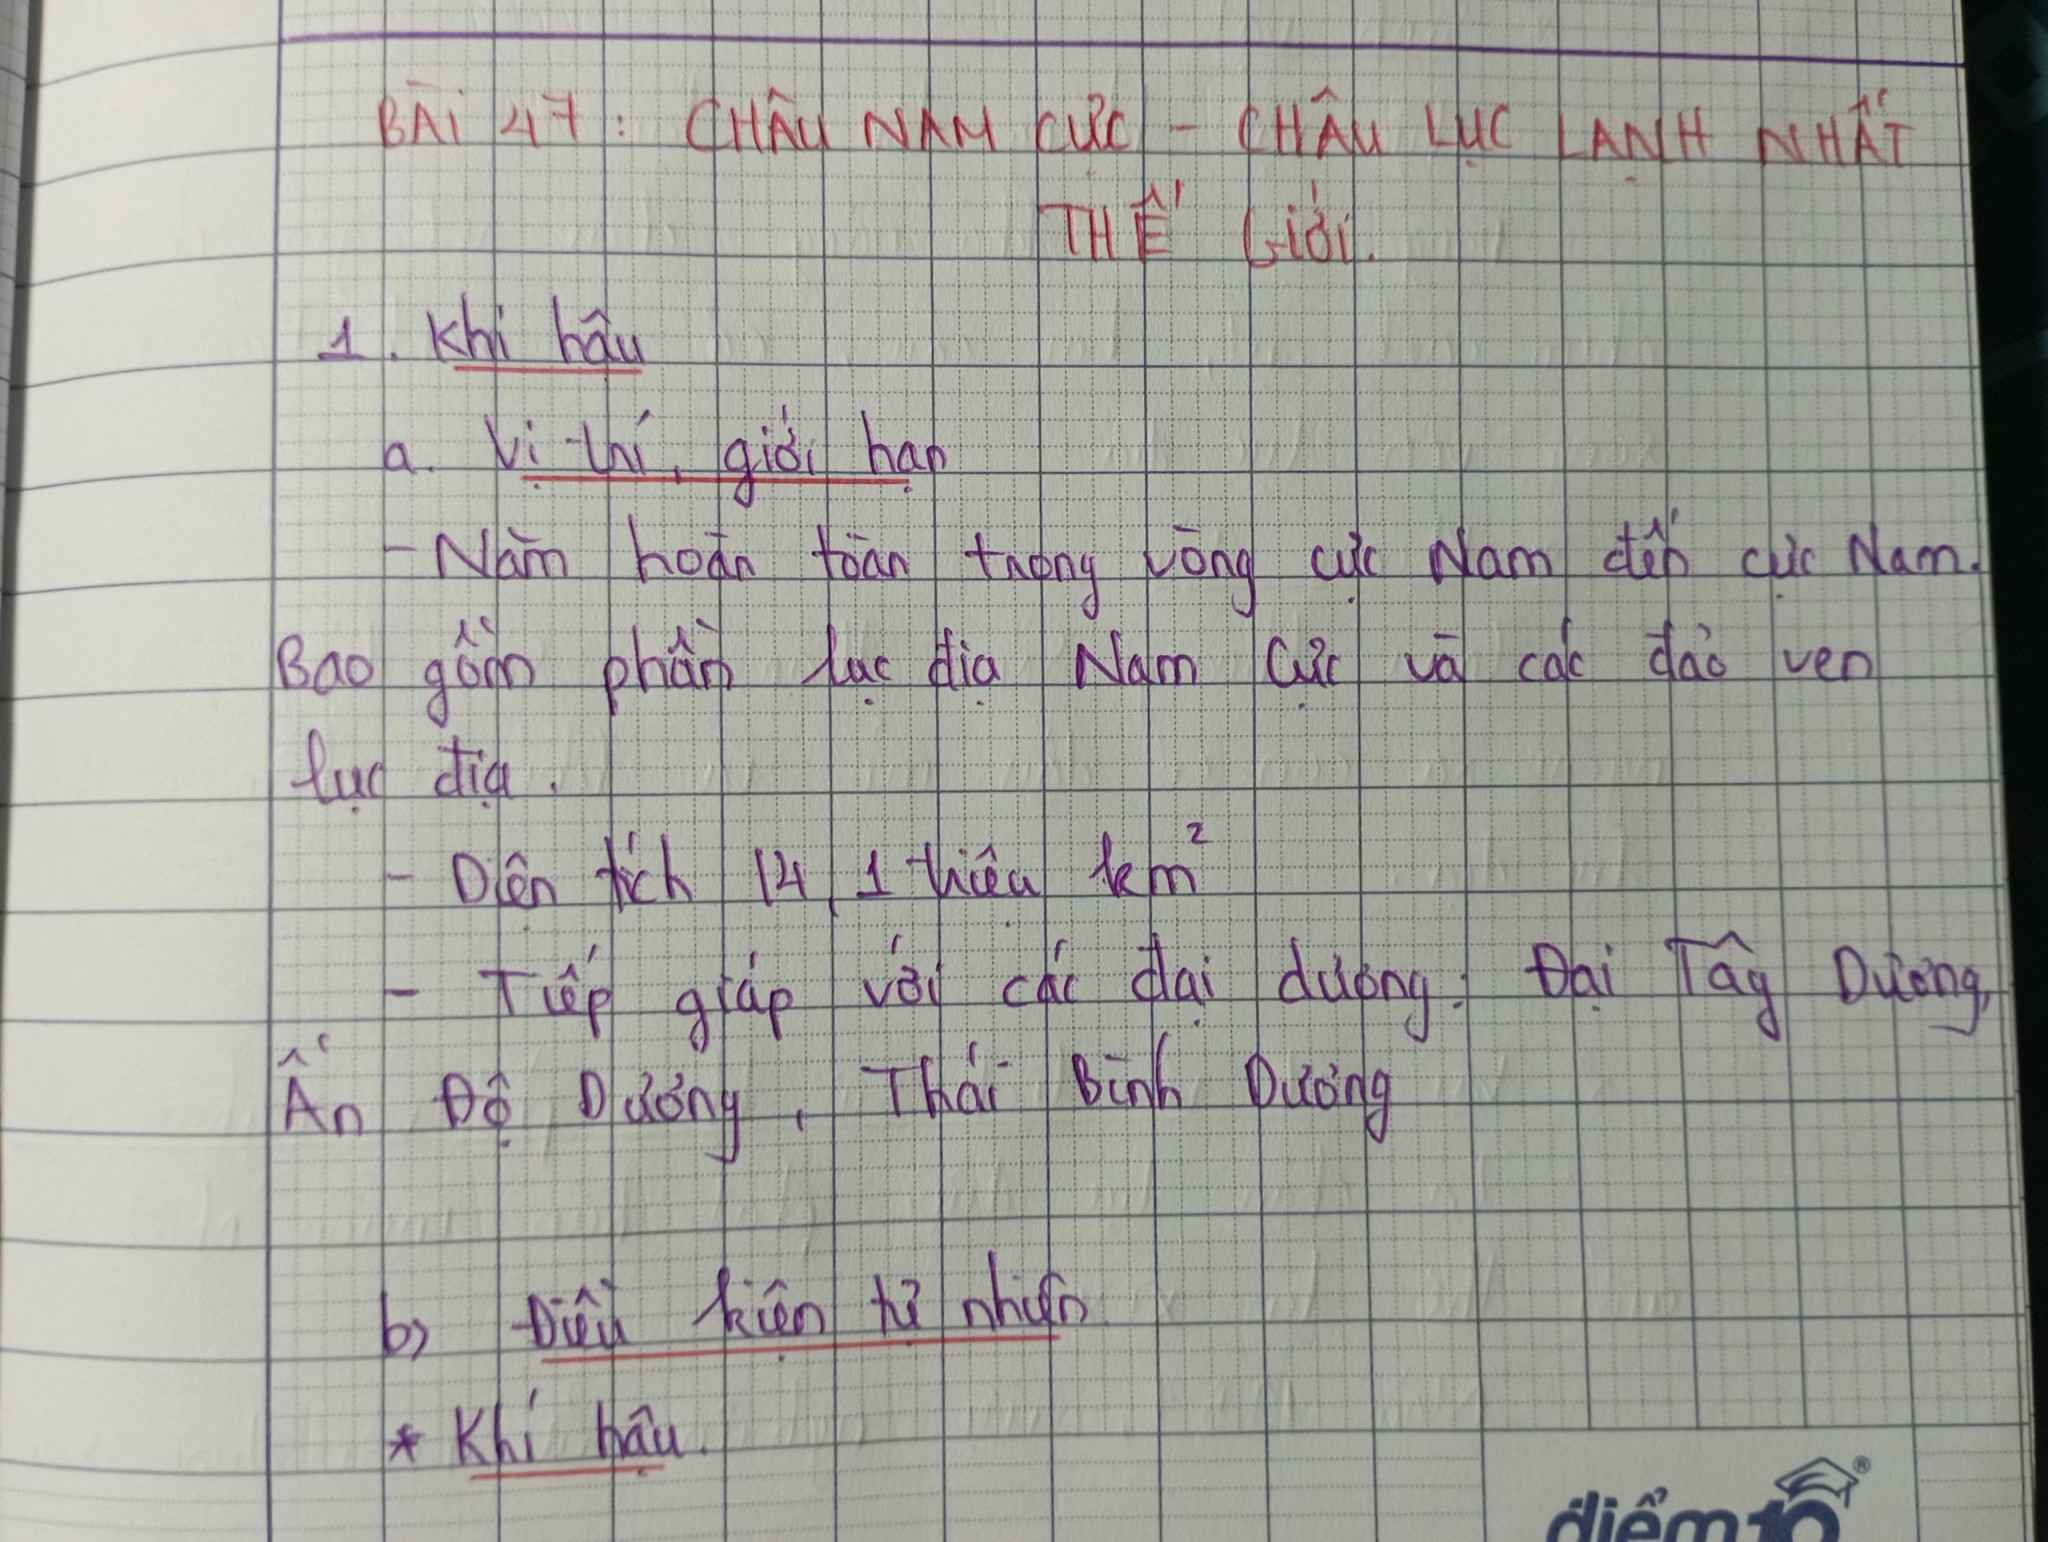 BÀI 47: CHÂU NAM CỰC - CHÂU LỤC LẠNH NHẤT
THẾ GIỚI.
1. Khí hậu
a. Vị trí, giới hạn
- Nằm hoàn toàn trong vòng cực Nam đến cực Nam.
Bao gồm phần lục địa Nam Cực và các đảo ven
lục địa.
- Diện tích 14,1 triệu km²
- Tiếp giáp với các đại dương: Đại Tây Dương,
Ấn Độ Dương, Thái Bình Dương
b) Điều kiện tự nhiên
* Khí hậu.
điểm10®